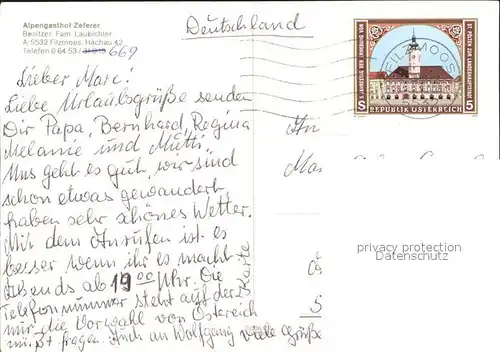 Alpengasthof Zeferer
Besitzer: Fam. Laubichler
A-5532 Filzmoos, Hachau 42
Telefon 0 64 53 / 669
Deutschland
Lieber Marc!
Liebe Urlaubsgrüße senden
Dir Papa, Bernhard, Regina
Melanie und Mutti.
Uns geht es gut, wir sind
schon etwas gewandert,
haben sehr schönes Wetter.
Mit dem Anrufen ist es
besser wenn ihr es macht
Abends ab 19 00 Uhr. Die
Telefonnummer steht auf der Karte
nur die Vorwahl von Österreich
müßt fragen. Auch an Wolfgang viele Grüße
FILZMOOS
ST. PÖLTEN ZUR LANDESHAUPTSTADT
S REPUBLIK ÖSTERREICH 5
An
Mar
privacy protection
Datenschutz